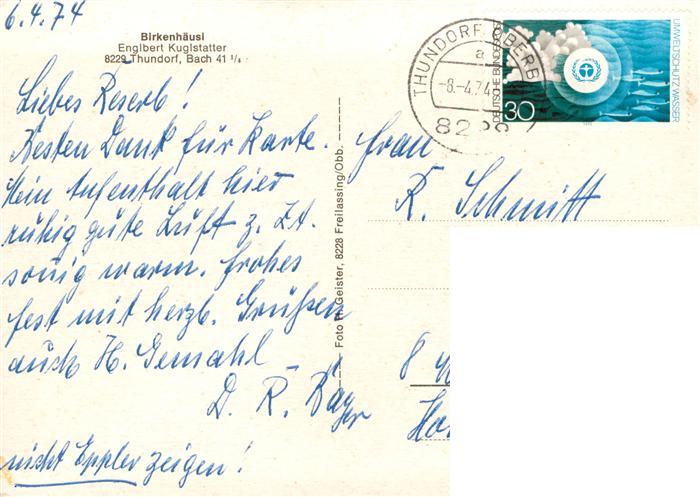 6.4.74
Birkenhäusl
Englbert Kuglstatter
8229 Thundorf, Bach 41 1/4
Liebes Reserb!
Besten Dank für Karte.
Mein Aufenthalt hier
ruhig gute Luft z. Zt.
sonig warm. frohes
fest mit herzl. Grüßen
auch H. Gemahl
D. R.
nicht Eppler zeigen!
Foto Th. Geister, 8228 Freilassing/Obb.
THUNDORF
a
-8.-4.74
82
DEUTSCHE BUNDESPOST
30
UMWELTSCHUTZ: WASSER
Frau
R. Schmitt
8